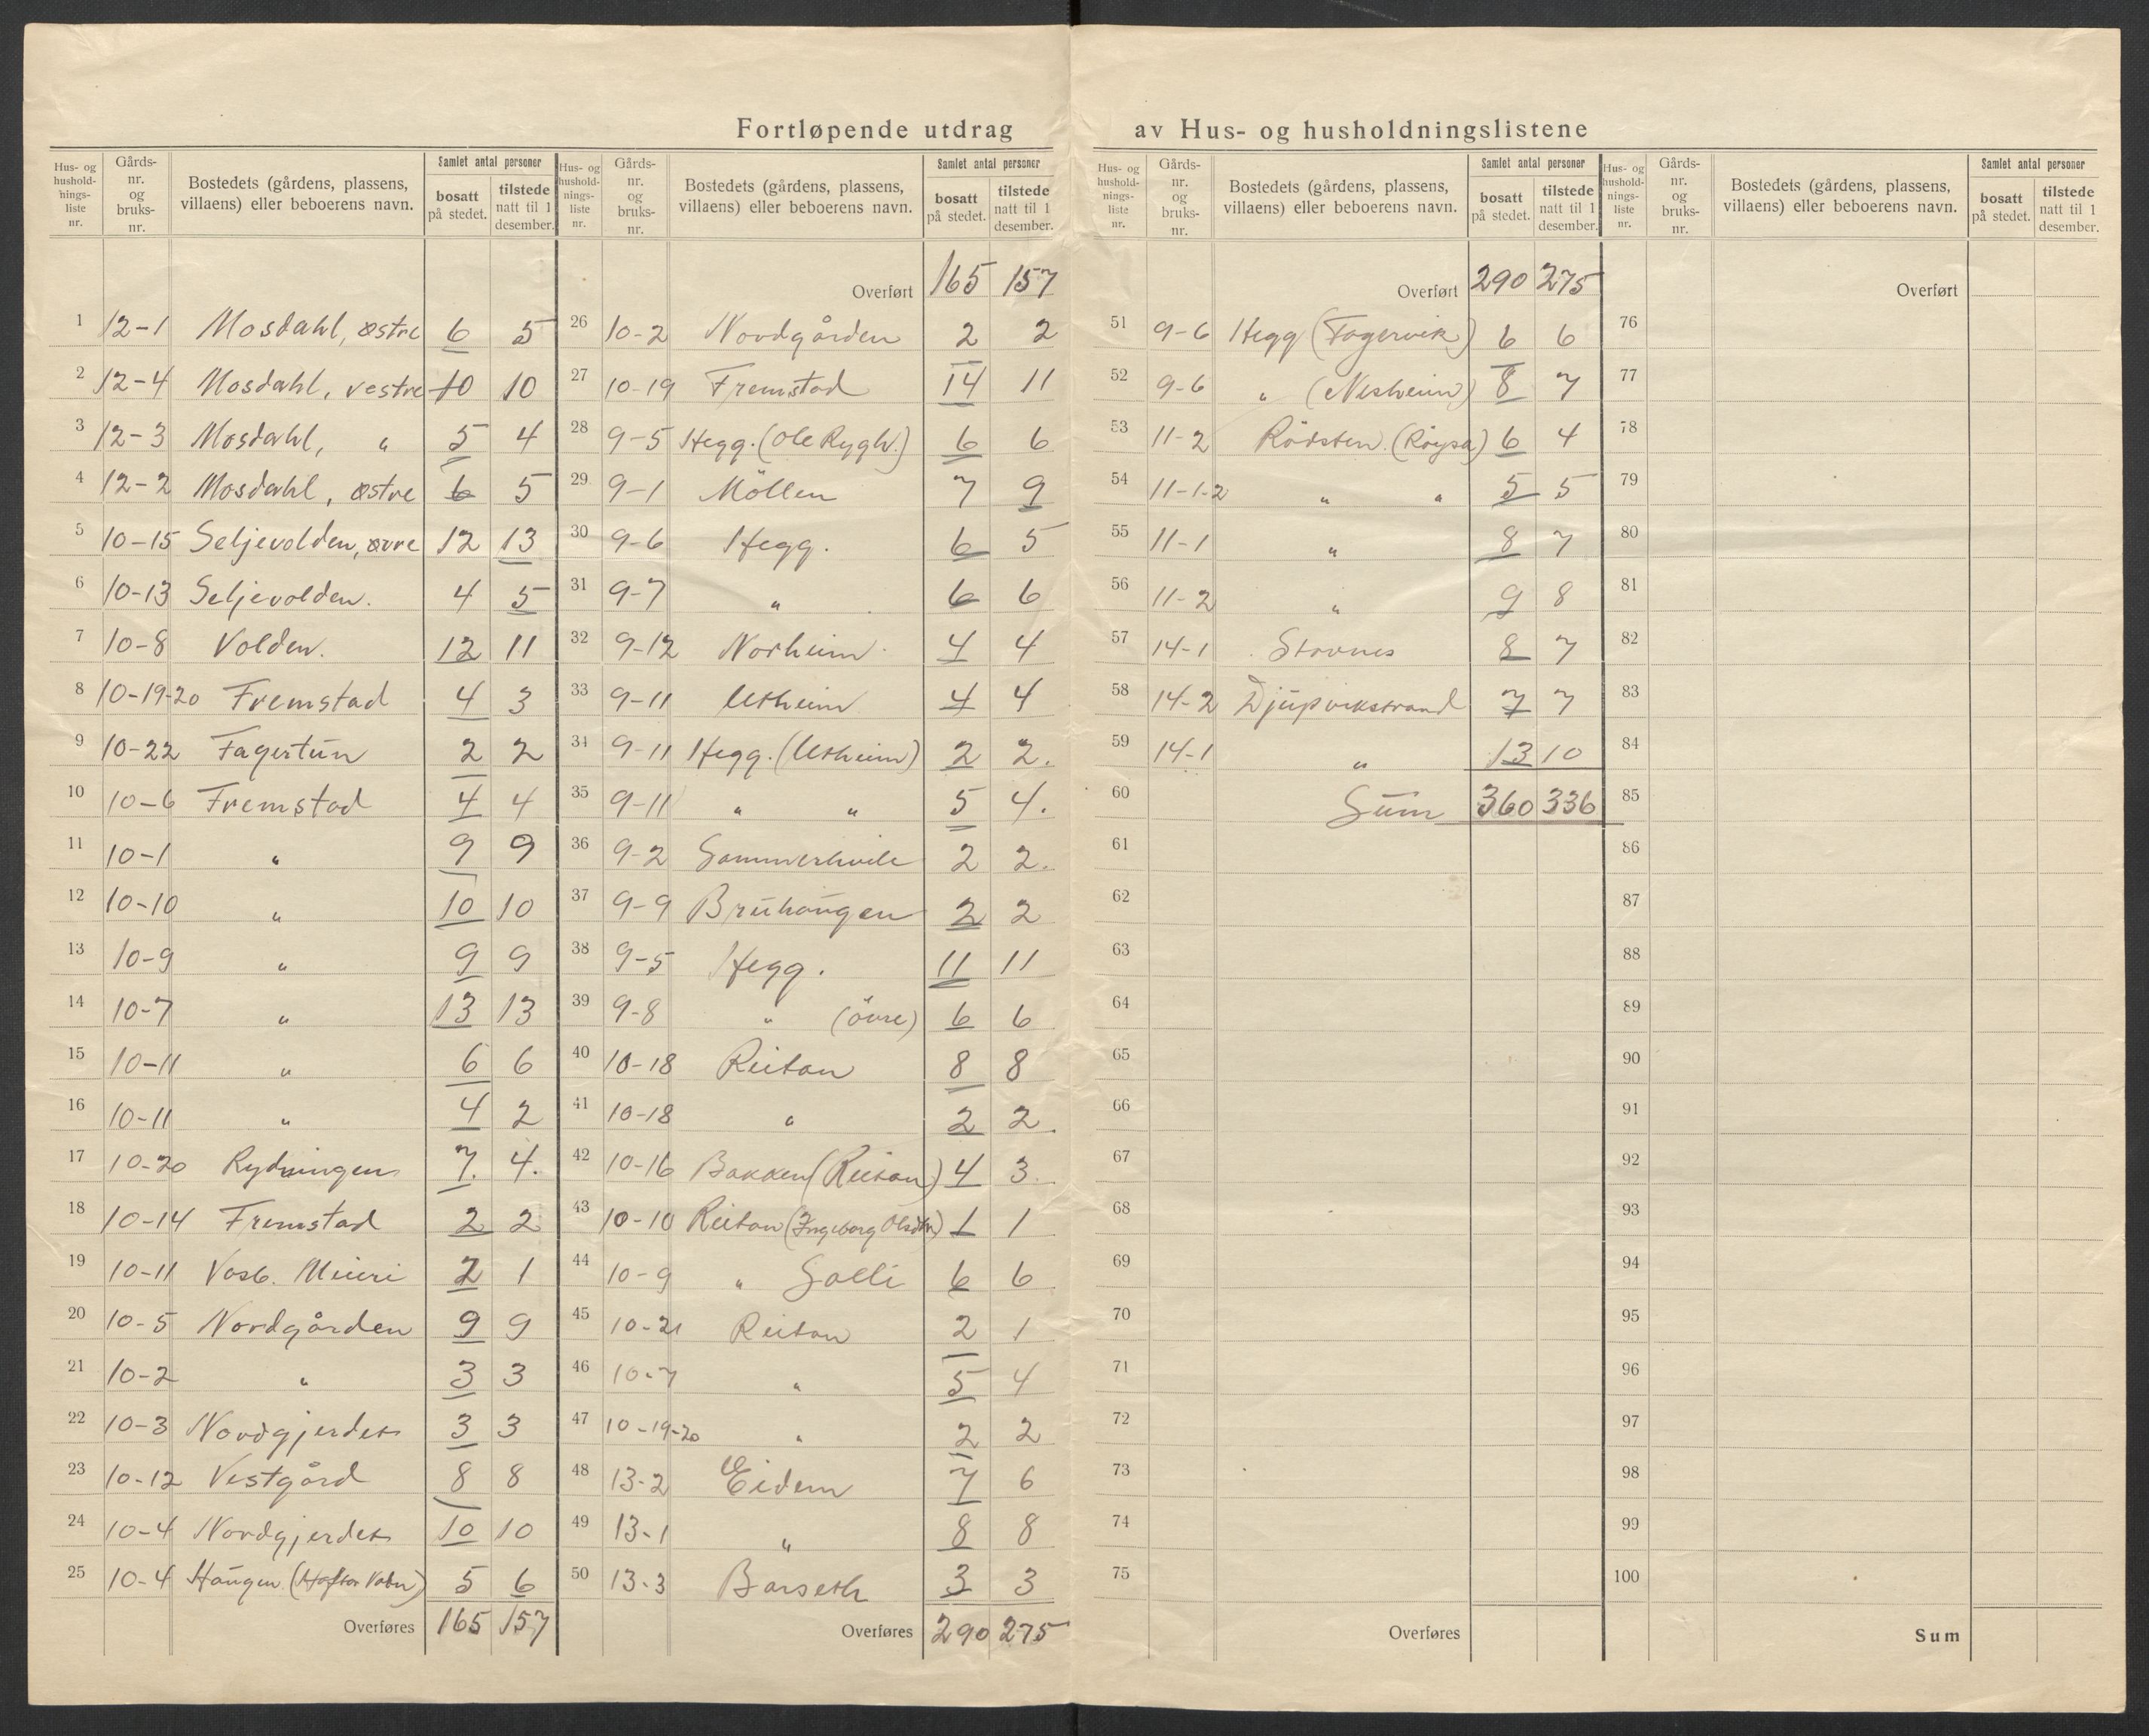 Fortløpende utdrag av Hus- og husholdningslistene
Hus- og hushold-nings-liste nr. | Gårds-nr. og bruks-nr. | Bostedets (gårdens, plassens, villaens) eller beboerens navn. | Samlet antal personer | bosatt på stedet. | tilstede natt til 1 desember.
1 12-1 Mosdahl, østre 6 5
2 12-4 Mosdahl, vestre 10 10
3 12-3 Mosdahl, " 5 4
4 12-2 Mosdahl, østre 6 5
5 10-15 Seljevolden, øvre 12 13
6 10-13 Seljevolden. 4 5
7 10-8 Volden. 12 11
8 10-19-20 Fremstad 4 3
9 10-22 Fagertun 2 2
10 10-6 Fremstad 4 4
11 10-1 " 9 9
12 10-10 " 10 10
13 10-9 " 9 9
14 10-7 " 13 13
15 10-11 " 6 6
16 10-11 " 4 2
17 10-20 Rydningen 7. 4.
18 10-14 Fremstad 2 2
19 10-11 Meieri 2 1
20 10-5 Nordgården 9 9
21 10-2 " 3 3
22 10-3 Nordgjerdet 3 3
23 10-12 Vestgård 8 8
24 10-4 Nordgjerdet 10 10
25 10-4 Haugen 5 6
Overføres 165 157
Hus- og hushold-nings-liste nr. | Gårds-nr. og bruks-nr. | Bostedets (gårdens, plassens, villaens) eller beboerens navn. | Samlet antal personer | bosatt på stedet. | tilstede natt til 1 desember.
Overført 165 157
26 10-2 Nordgården 2 2
27 10-19 Fremstad 14 11
28 9-5 Hegg. (Ole Rygh.) 6 6
29 9-1 Möllen 7 9
30 9-6 Hegg. 6 5
31 9-7 " 6 6
32 9-12 Norheim 4 4
33 9-11 Utheim 4 4
34 9-11 Hegg. (Utheim) 2 2.
35 9-11 " " 5 4.
36 9-2 Sommerhvile 2 2.
37 9-9 Bruhaugen 2 2
38 9-5 Hegg. 11 11
39 9-8 " (övre) 6 6
40 10-18 Reitan 8 8
41 10-18 " 2 2.
42 10-16 Bakken (Reitan) 4 3.
43 10-10 Reitan (Ingeborg Olsdtr.) 1 1
44 10-9 " Solli 6 6
45 10-21 Reitan 2 1
46 10-7 " 5 4
47 10-19-20 " 2 2
48 13-2 Eidem 7 6
49 13-1 " 8 8
50 13-3 Barseth 3 3
Overføres 290 275
Hus- og hushold-nings-liste nr. | Gårds-nr. og bruks-nr. | Bostedets (gårdens, plassens, villaens) eller beboerens navn. | Samlet antal personer | bosatt på stedet. | tilstede natt til 1 desember.
Overført 290 275
51 9-6 Hegg (Fagervik) 6 6
52 9-6 " (Nesheim) 8 7
53 11-2 Rödsten. (Röysa) 6 4
54 11-1-2 " " 5 5
55 11-1 " 8 7
56 11-2 " 9 8
57 14-1 Stavnes 8 7
58 14-2 Djupvikstrand 7 7
59 14-1 " 13 10
60 Sum 360 336
61
62
63
64
65
66
67
68
69
70
71
72
73
74
75
Overføres
Hus- og hushold-nings-liste nr. | Gårds-nr. og bruks-nr. | Bostedets (gårdens, plassens, villaens) eller beboerens navn. | Samlet antal personer | bosatt på stedet. | tilstede natt til 1 desember.
Overført
76
77
78
79
80
81
82
83
84
85
86
87
88
89
90
91
92
93
94
95
96
97
98
99
100
Sum